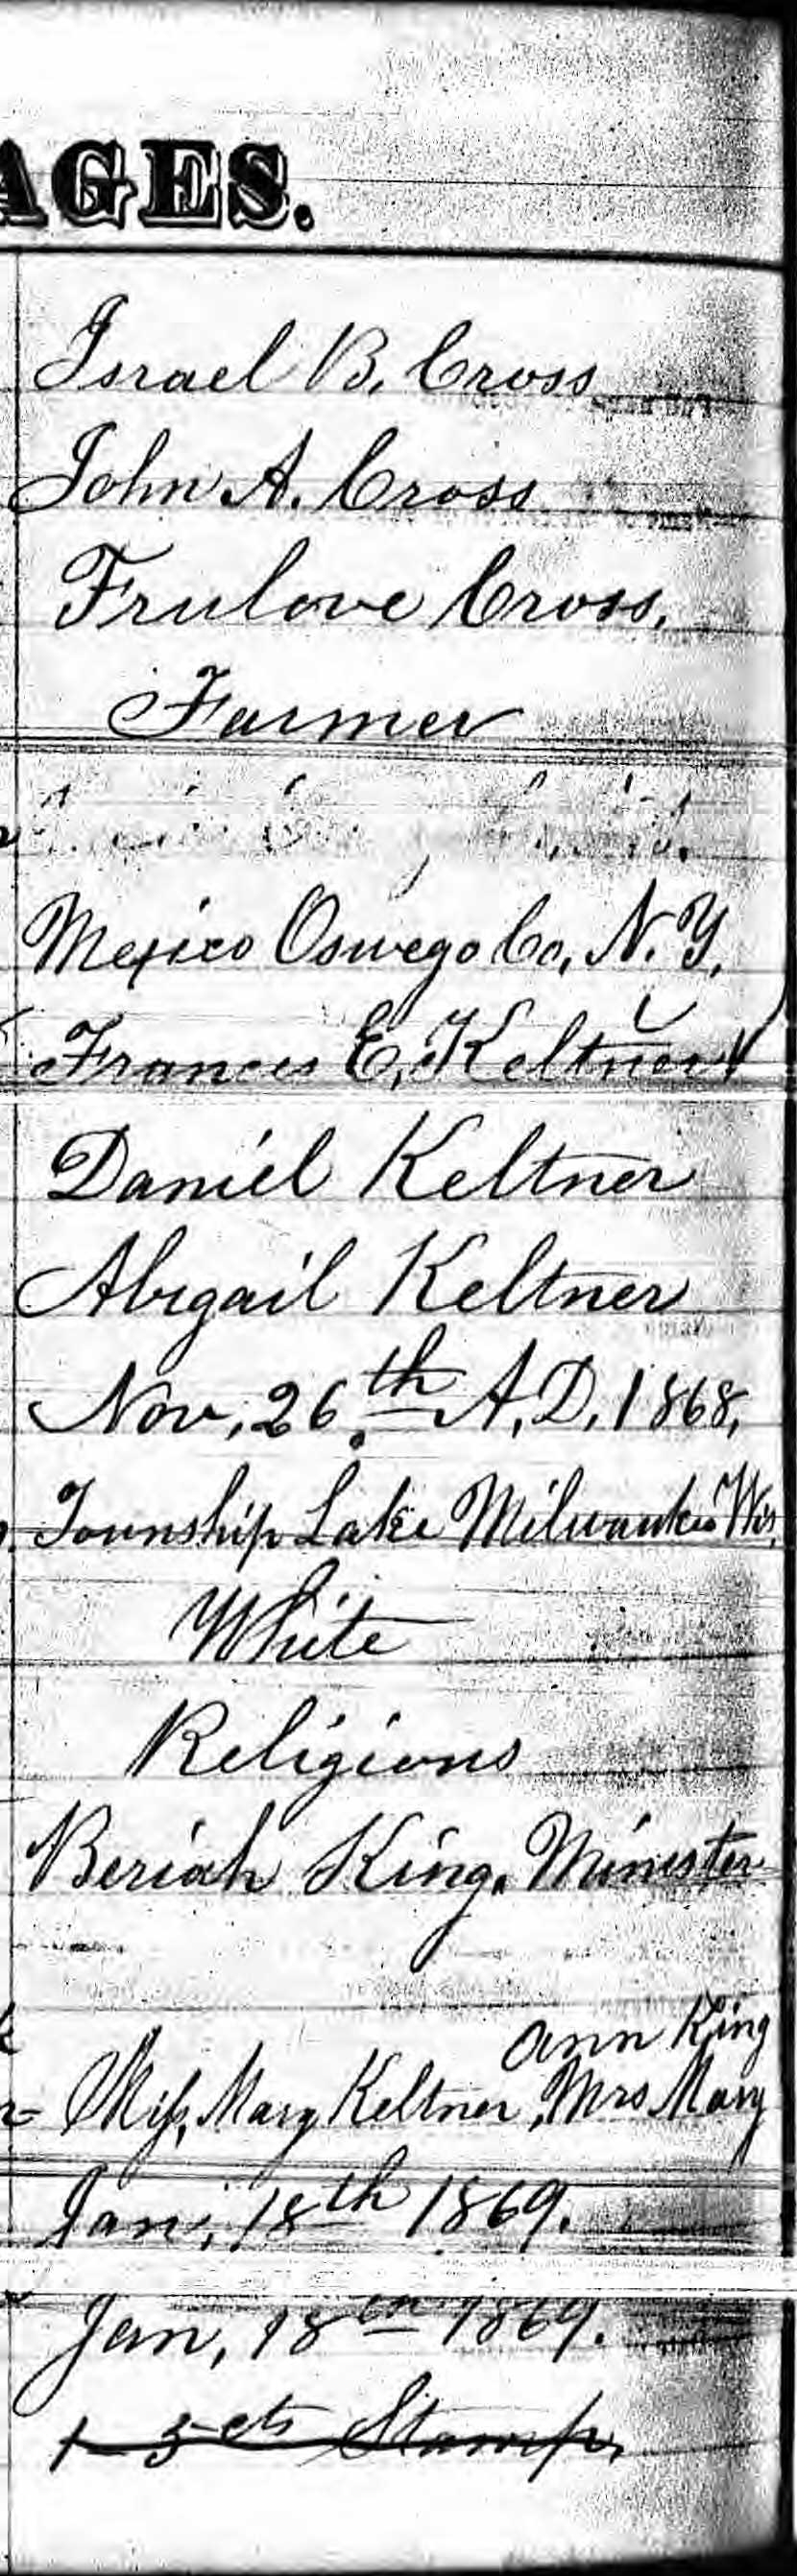 AGES.
Israel B. Cross
John A. Cross
Frulove Cross.
Farmer
Mexico Oswego Co, N. Y.
Frances E, Keltner
Daniel Keltner
Abigail Keltner
Nov, 26th A, D, 1868,
Township Lake Milwaukee Wis.
White
Religious
Beriah King, Minister
ann King
Miss, Mary Keltner, Mrs Mary
Jan, 18th 1869.
Jan, 18th 1869.
1 5 cts Stamp,